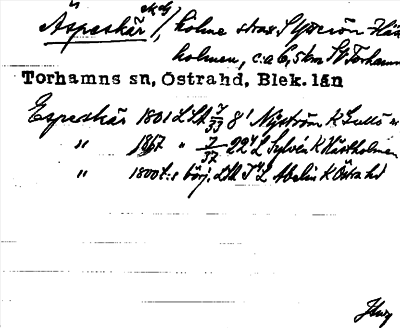 Äspeskär, holme strax S Ytterön Häst
holmen, c:a 6,5 km SV Torhamn
Torhamns sn, Östra hd, Blek. län
Espeskär 1801 LSA 7/33 8' Nyström K Gullö m
" 1867 " 7/37 22' L Sylvén K Hästholmen
" 1800 t:s börj. LSA Abelin K Östra hd